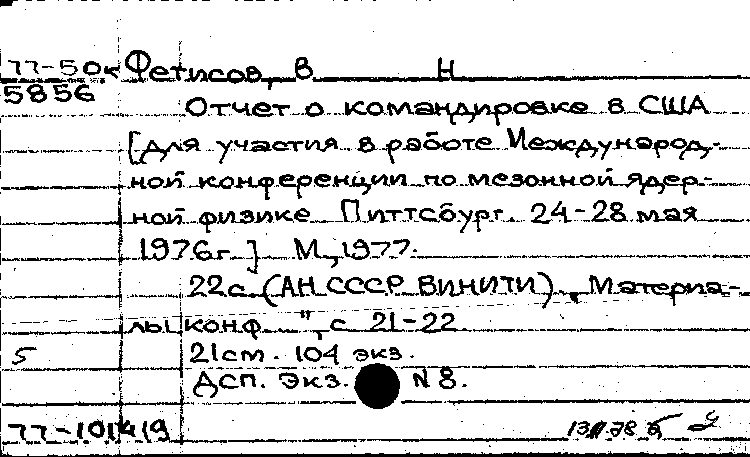 77-50к Фетисов, В Н
5856
Отчет о командировке в США
[для участия в работе Международ-
ной конференции по мезонной ядер-
ной физике Питтсбург. 24-28 мая
1976г.] М., 1977.
22с. (АН СССР ВИНИТИ). Материа-
лы конф. ", с 21-22.
5 21см. 104 экз.
ДСП. Экз. N 8.
77-101419